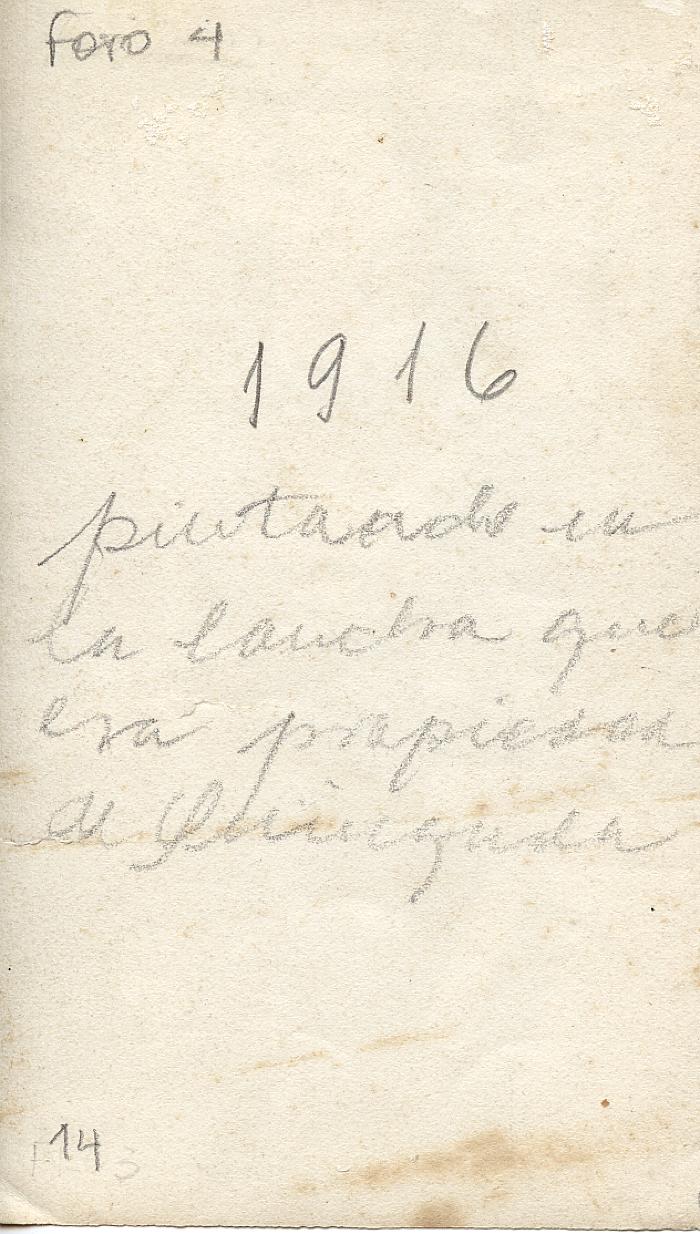 Foto 4
1916
pintando en
la lancha que
era propiedad
de
14